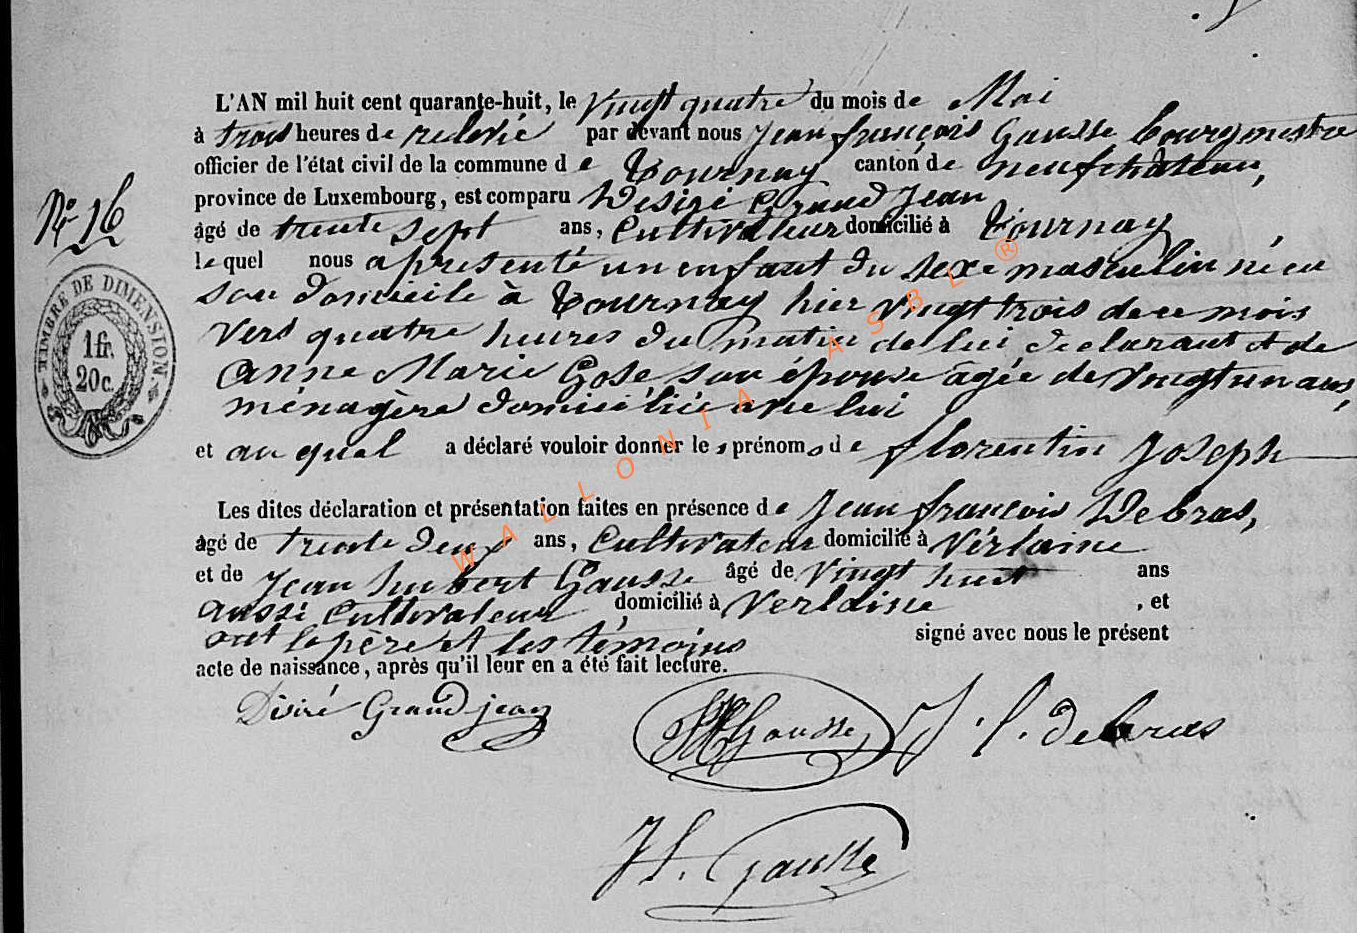 L'AN mil huit cent quarante-huit, le vingt quatre du mois de Mai
à trois heures de rélevée par devant nous Jean françois Gausse bourgmestre
officier de l'état civil de la commune de Tournay canton de neufchâteau,
province de Luxembourg, est comparu Désiré Grand Jean
âgé de trente sept ans, Cultivateur domicilié à Tournay
lequel nous a présenté un enfant du sexe masculin né en
son domicile à Tournay hier vingt trois de ce mois
vers quatre heures du matin de lui déclarant et de
Anne Marie Gose, son épouse âgée de vingt un ans,
ménagère domiciliée avec lui
et auquel a déclaré vouloir donner les prénoms de florentin Joseph
Nº 16
TIMBRE DE DIMENSION
1 fr.
20 c.
Les dites déclaration et présentation faites en présence de Jean françois Debras,
âgé de trente deux ans, Cultivateur domicilié à Verlaine
et de Jean hubert Gausse âgé de vingt huit ans
aussi Cultivateur domicilié à Verlaine, et
ont le père et les témoins signé avec nous le présent
acte de naissance, après qu'il leur en a été fait lecture.
Désiré Grandjean
JH Gausse
J. f. debras
J f. Gausse
WALLONIA ASBL ®